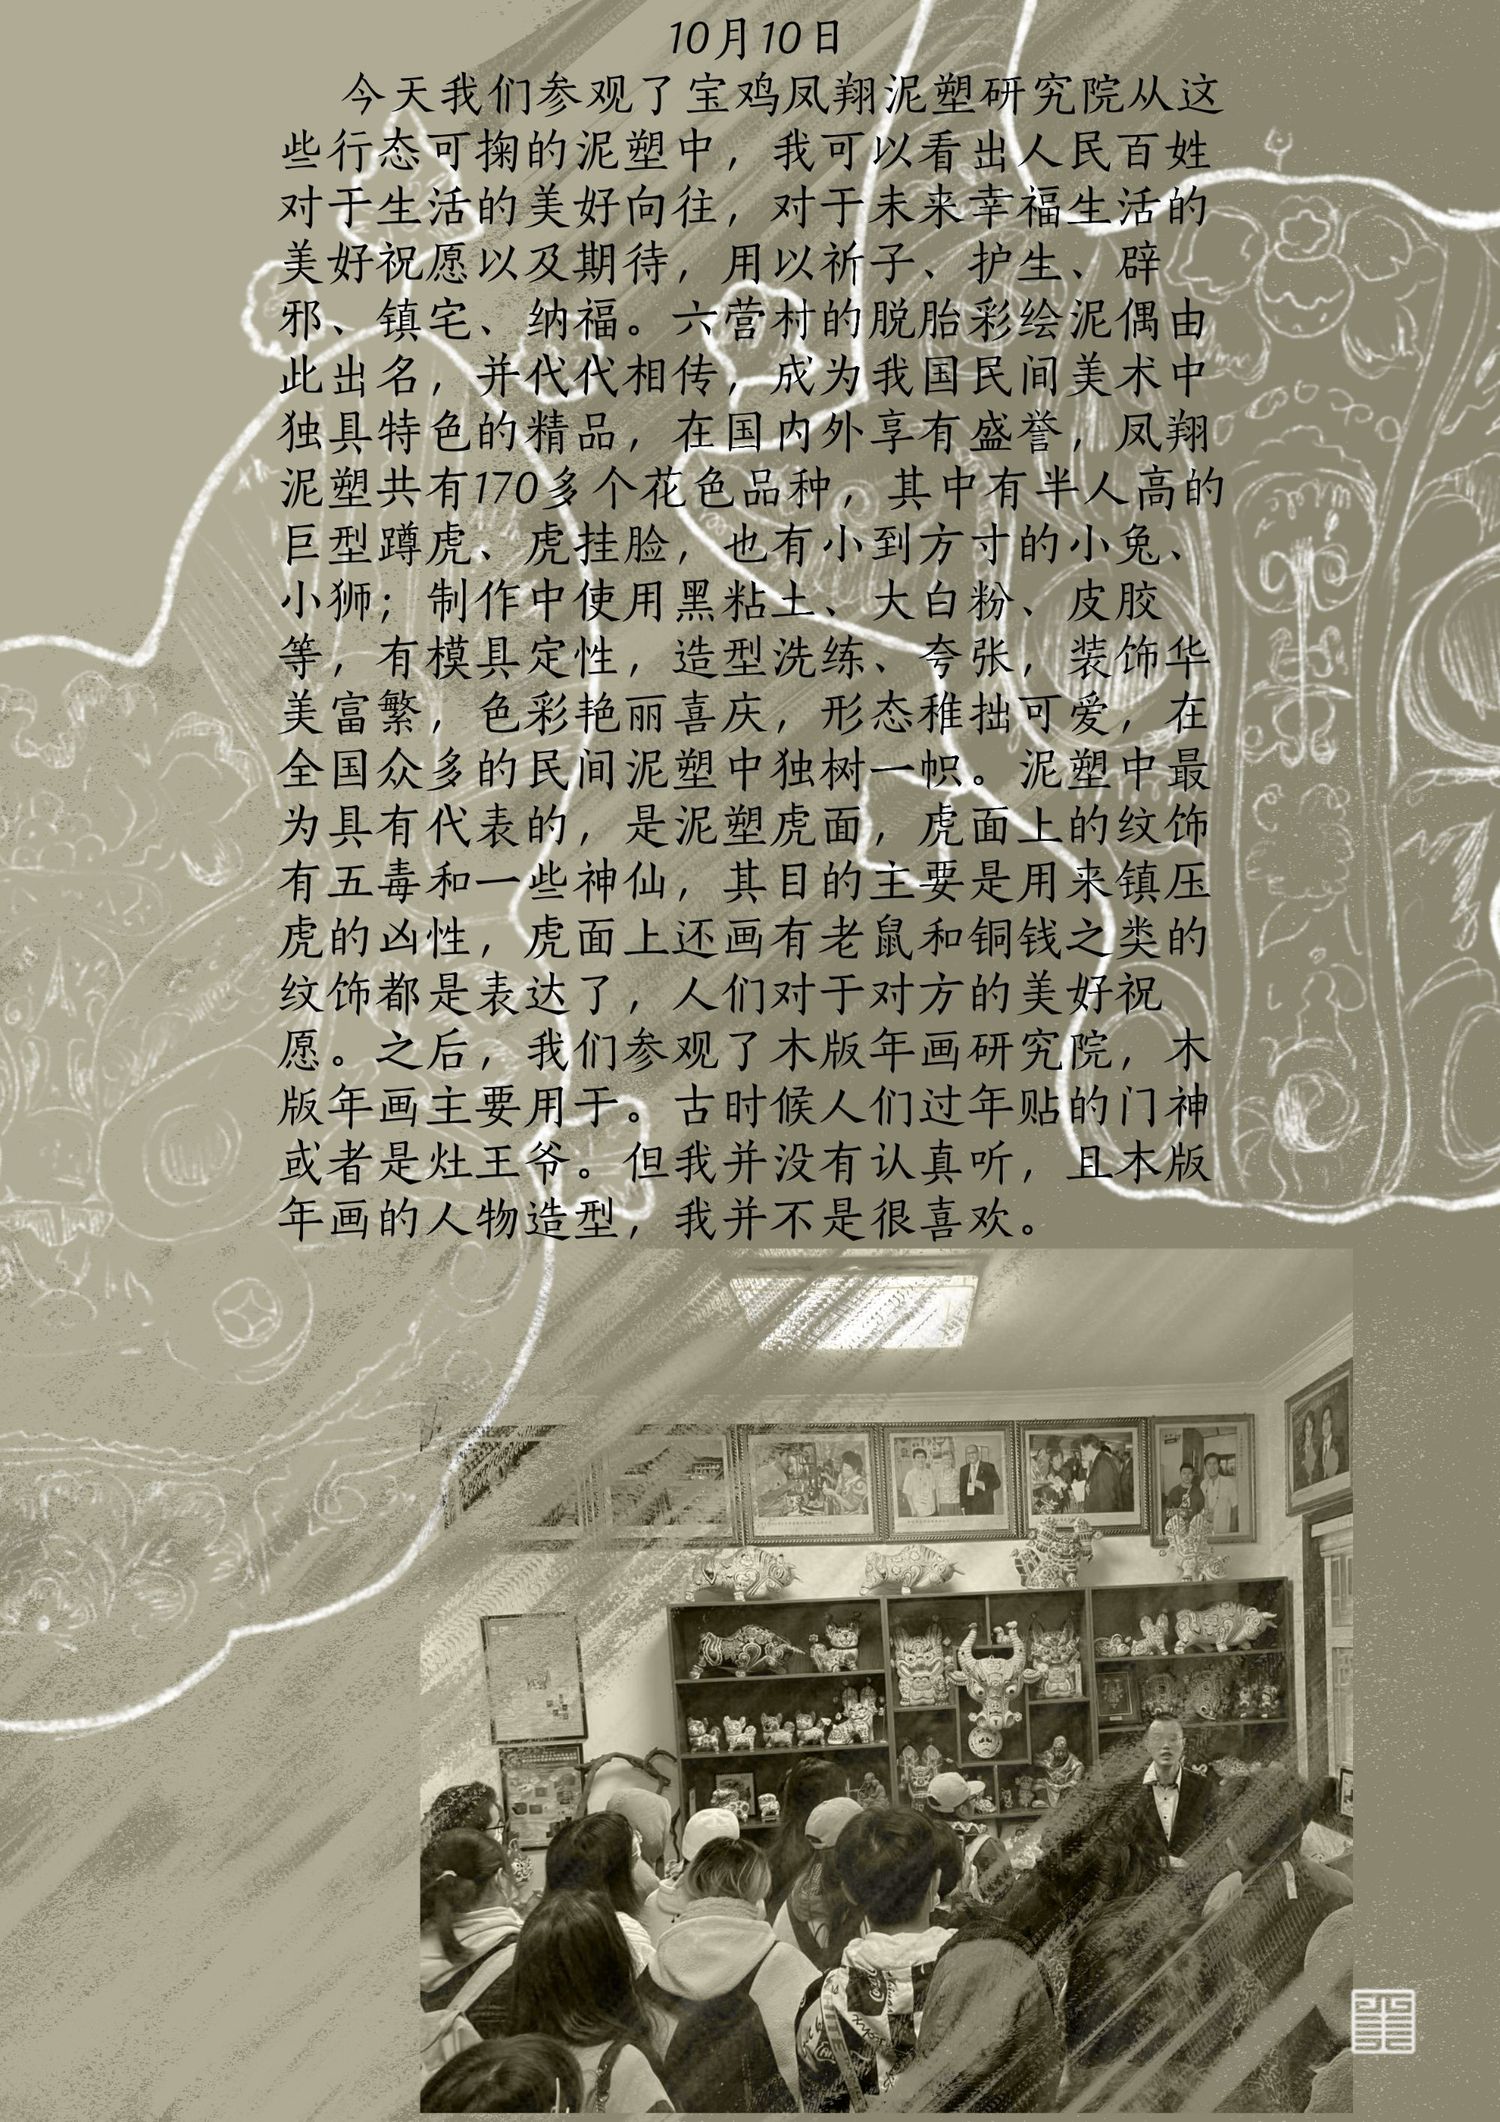 10月10日
今天我们参观了宝鸡凤翔泥塑研究院从这
些行态可掬的泥塑中，我可以看出人民百姓
对于生活的美好向往，对于未来幸福生活的
美好祝愿以及期待，用以祈子、护生、辟
邪、镇宅、纳福。六营村的脱胎彩绘泥偶由
此出名，并代代相传，成为我国民间美术中
独具特色的精品，在国内外享有盛誉，凤翔
泥塑共有170多个花色品种，其中有半人高的
巨型蹲虎、虎挂脸，也有小到方寸的小兔、
小狮；制作中使用黑粘土、大白粉、皮胶
等，有模具定性，造型洗练、夸张，装饰华
美富繁，色彩艳丽喜庆，形态稚拙可爱，在
全国众多的民间泥塑中独树一帜。泥塑中最
为具有代表的，是泥塑虎面，虎面上的纹饰
有五毒和一些神仙，其目的主要是用来镇压
虎的凶性，虎面上还画有老鼠和铜钱之类的
纹饰都是表达了，人们对于对方的美好祝
愿。之后，我们参观了木版年画研究院，木
版年画主要用于。古时候人们过年贴的门神
或者是灶王爷。但我并没有认真听，且木版
年画的人物造型，我并不是很喜欢。